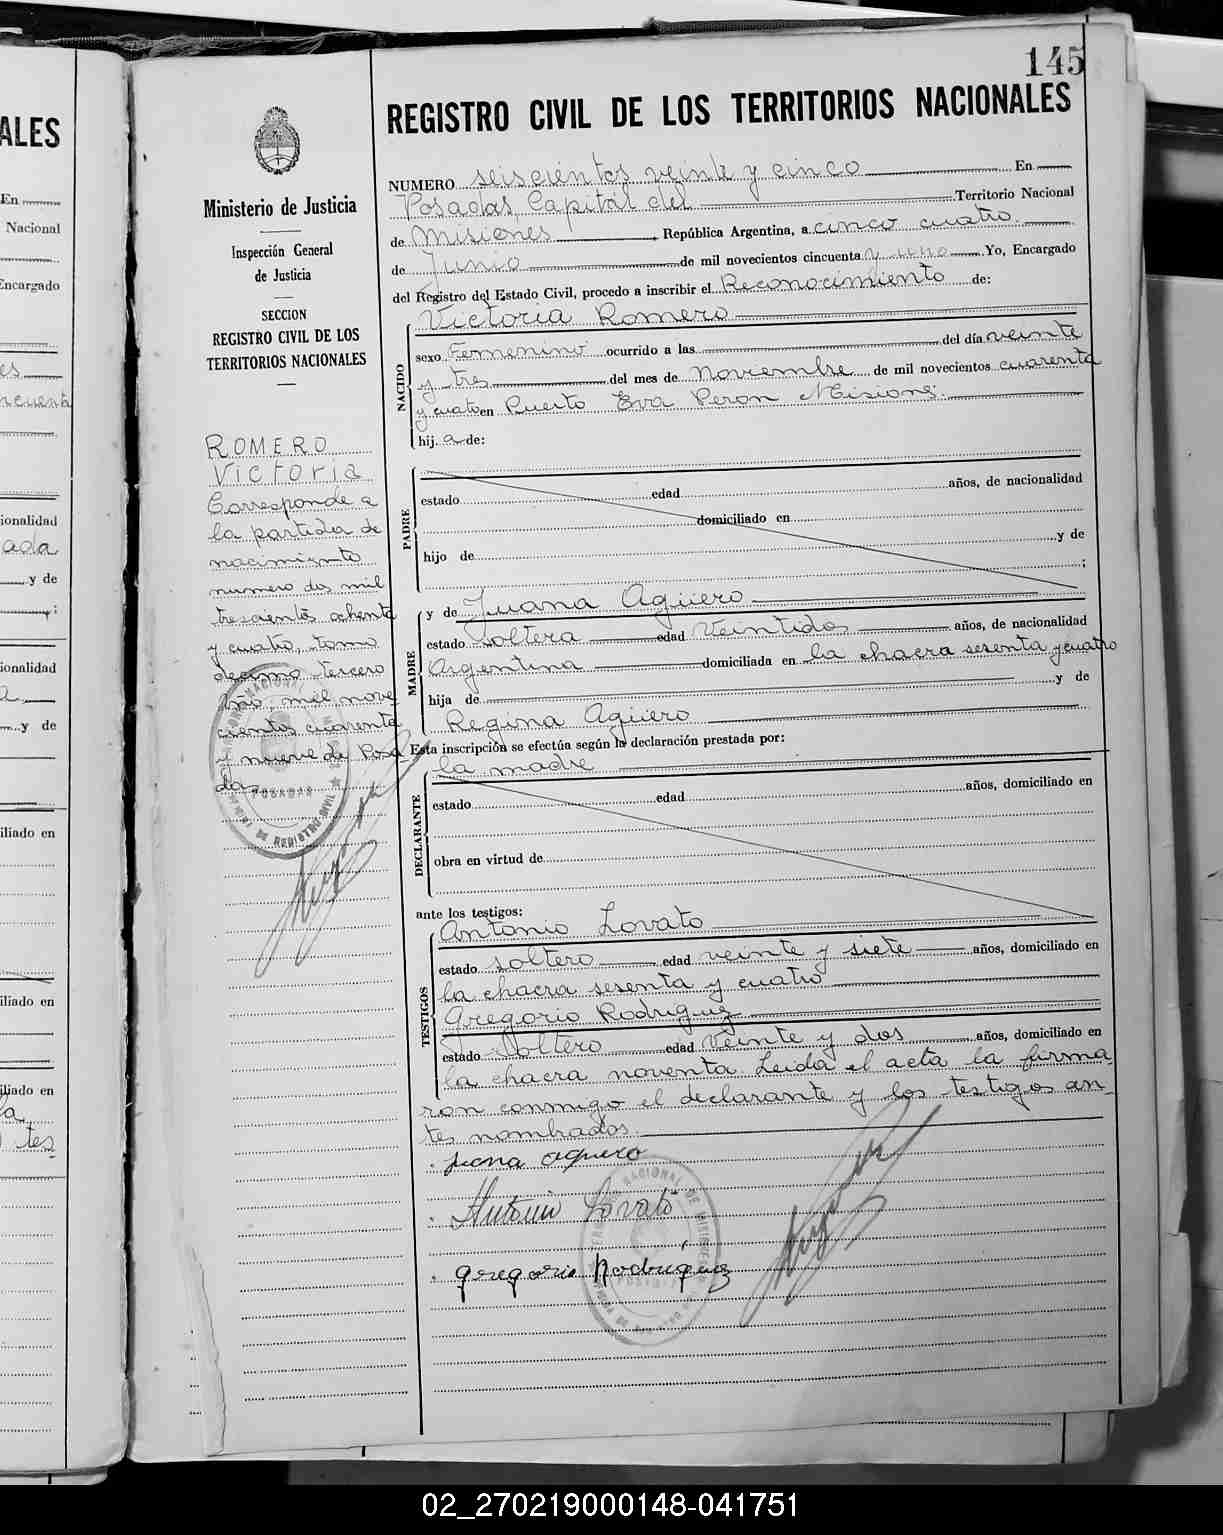 145
REGISTRO CIVIL DE LOS TERRITORIOS NACIONALES
Ministerio de Justicia
Inspección General
de Justicia
SECCION
REGISTRO CIVIL DE LOS
TERRITORIOS NACIONALES
ROMERO
Victoria
Corresponde a
la partida de
nacimiento
numero dos mil
trescientos ochenta
y cuatro, tomo
decimo tercero
año, mil nove
cientos cuarenta
y nueve de Posa
das
NUMERO seiscientos veinte y cinco En
Posadas Capital del Territorio Nacional
de Misiones, República Argentina, a cinco cuatro
de Junio de mil novecientos cincuenta y uno Yo, Encargado
del Registro del Estado Civil, procedo a inscribir el Reconocimiento de:
NACIDO
Victoria Romero
sexo Femenino ocurrido a las del día veinte
y tres del mes de Noviembre de mil novecientos cuarenta
y cuato en Puerto Eva Peron Misiones.
hij a de:
PADRE
estado edad años, de nacionalidad
domiciliado en
hijo de y de
;
MADRE
y de Juana Agüero
estado soltera edad Veintidos años, de nacionalidad
Argentina domiciliada en la chacra sesenta y cuatro
hija de y de
Regina Agüero
Esta inscripción se efectúa según la declaración prestada por:
DECLARANTE
la madre
estado edad años, domiciliado en
obra en virtud de
ante los testigos:
TESTIGOS
Antonio Lovato
estado soltero edad veinte y siete años, domiciliado en
la chacra sesenta y cuatro
Gregorio Rodriguez
estado Soltero edad Veinte y dos años, domiciliado en
la chacra noventa. Leida el acta la firma
ron conmigo el declarante y los testigos an
tes nombrados.
Juana Aguero
Antonio Lovato
Gregorio Rodriguez
POSADAS
02_270219000148-041751